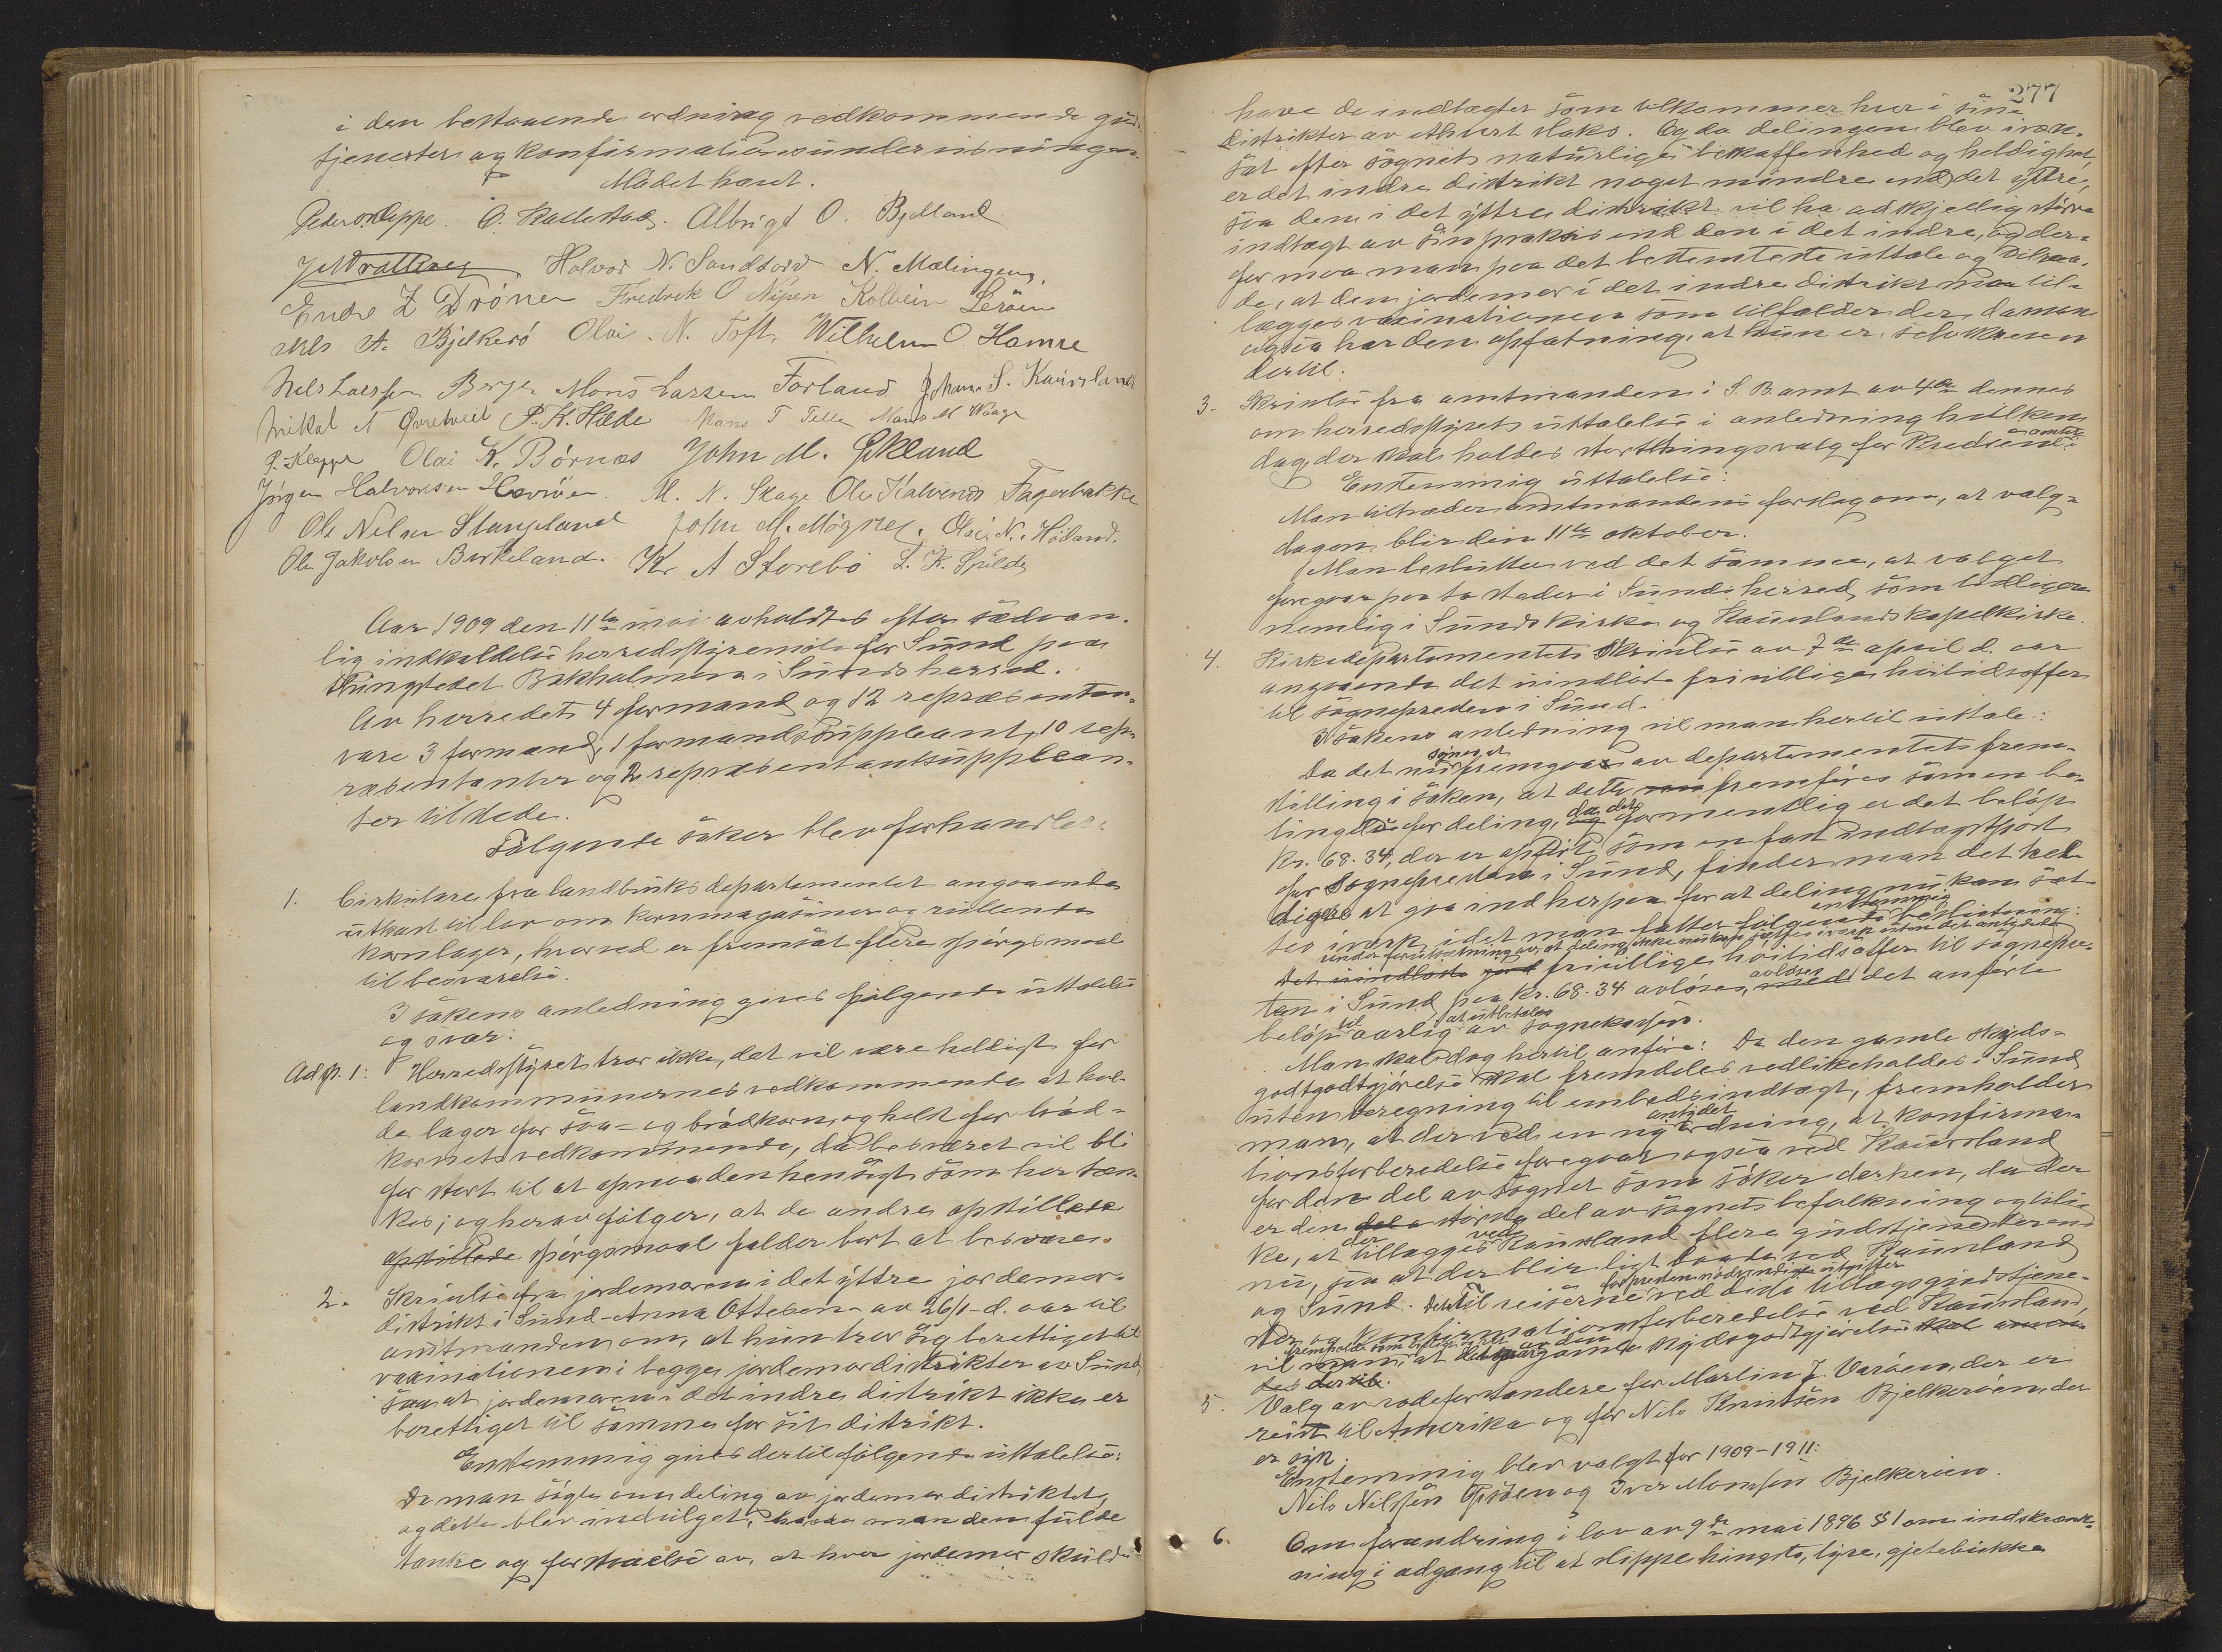 i den bestaaende ordning vedkommende guds-
tjenester og konfirmationsundervisningen.
Mödet hævet.
Peder O. Kleppe. O. Kallestad. Albrigt O. Bjelland
Halvor N. Sandtorv N. Mælingen,
Endre Z Tröner Fredrik O Nipen Kolbein Leröen
Nils A. Bjelkerö Olai. N. Toft, Wilhelm O. Hamre
Nils Larssen Berge Mons Larsen Forland Johan S. Kausland
Mikal A Qvretveit P. K. Hilde Mons T Telle Mons M Waage
P. Kleppe Olai K. Börnæs John M. Økland
Jörgen Halvorsen Havröen. M. N. Skage Ole Halvorsen Fagerbakke
Ole Nilsen Stangeland John M. Mögster. Olai. N. Höiland.
Ole Jakobsen Birkeland. Kr. A Storebö L. K. Spilde
Aar 1909 den 11te mai avholdtes efter sædvan-
lig indkaldelse herredsstyremöte for Sund paa
thingstedet Bækholmen i Sunds herred.
Av herredets 4 formænd og 12 repræsentan-
vare 3 formænd, 1 formandssuppleant, 10 rep-
ræsentanter og 2 repræsentantsupplean-
ter tilstede.
Fölgende saker blev forhandlet:
1. Cirkulære fra landbruksdepartementet angaaende
utkast til lov om kornmagasiner og rullende
kornlager, hvorved er fremsat flere spörgsmaal
til besvarelse.
I sakens anledning gives fölgende uttalelse
og svar:
Ad p. 1: Herredsstyret tror ikke, det vil være heldigst for
landkommunernes vedkommende at hol-
de lager for saa- og brödkorn, og helst for bröd-
kornets vedkommende, da besværet vil bli
for stort til at opnaa den hensigt som her tæn-
kes; og herav fölger, at de andre opstillede
opstillede spörgsmaal falder bort at besvare.
2. Skrivelse fra jordemoren i det yttre jordemor-
distrikt i Sund - Anna Ottesen - av 26/1 - d. aar til
amtmanden om, at hun tror sig berettiget til
vaxinationen i begge jordemordistrikter av Sund,
saa at jordemoren i det indre distrikt ikke er
berettiget til samme for sit distrikt.
Enstemmig gives dertil fölgende uttalelse:
Da man sögte om deling av jordemordistriktet,
og dette blev indvilget, hadde man den fulde
tanke og forstaaelse av, at hver jordemor skulde
277
have de indtægter som tilkommer hver i sine
distrikter av ethvert slaks. Og da delingen blev iværk-
sat efter sognets naturlige beskaffenhed og heldighet,
er det indre distrikt noget mindre end det yttre,
saa den i det yttre distrikt vil ha adskjellig större
indtægt av sin praksis end den i det indre, og der-
for maa man paa det bestemteste uttale og tilraa-
de, at den jordemor i det indre distrikt maa til-
lægges vaxinationen som tilfalder der, da man
ogsaa har den opfatning, at hun er selvskreven
dertil.
3. Skrivelse fra amtmanden i S. B. amt av 4de dennes
om herredsstyrets uttalelse i anledning hvilken
dag der skal holdes storthingsvalg for kredsene i amtet.
Enstemmig uttalelse:
Man tiltræder amtmandens forslag om, at valg-
dagen blir den 11te oktober.
Man beslutter ved det samme, at valget
foregaar paa to steder i Sunds herred, som tidligere
nemlig i Sunds kirke og Kauslands kapelkirke.
4. Kirkedepartementets Skrivelse av 7de april d. aar
angaaende det uindlöste frivillige höitidsoffer
til sognepresten i Sund.
I sakens anledning vil man hertil uttale:
Da det nu synes at fremgaa av departementets frem-
stilling i saken, at dette fremföres som en be-
tingelse for deling, da det formentlig er det belöp
kr. 68.34, der er opfört som en fast indtægtspost
for Sognepresten i Sund, finder man det hel-
digst at gaa ind herpaa for at deling nu kan sæt-
tes iverk, idet man fatter fölgende enstemmig beslutning:
under forutsætning av, at deling ikke nu kan sættes iverk uten det antydede
Det uindlöste frivillige höitidsoffer til sognepres-
ten i Sund paa kr. 68.34 avlöses, med avlöses det anförte
belöp til aarlig at utbetales av sognekassen.
Man skal dog hertil anföre: Da den gamle skyds-
godtgodtgjörelse skal fremdeles vedlikeholdes i Sund
uten beregning til embedsindtægt, fremholder
man, at der ved en ny antydet ordning, at konfirma-
tionsforberedelse foregaar ogsaa ved Kausland
for den del av sognet som söker derhen, da der
er den störste del av sognets befolkning og tili-
ke, at der tillægges ved Kausland flere gudstjenester end
nu, saa at der blir likt baade ved Kausland
og Sund. Dertil reiserne for presten nödvendige utgifter ved disse tillægsgudstjene-
ster og konfirmationsforberedelse ved Kausland,
vil man, fremholde som billig at den gamle skydsgodtgjörelse skal anven-
des dertil.
5. Valg av rodeforstandere for Martin J. Varöen, der er
reist til Amerika og for Nils Knutsen Bjelkeröen, der
er syk.
Enstemmig blev valgt for 1909-1911:
Nils Nilsen Opsöen og Iver Monsen Bjelkeröen.
6. Om forandring i lov av 9de mai 1896 § 1 om indskrænk-
ning i adgang til at slippe hingste, tyre, gjetebukke